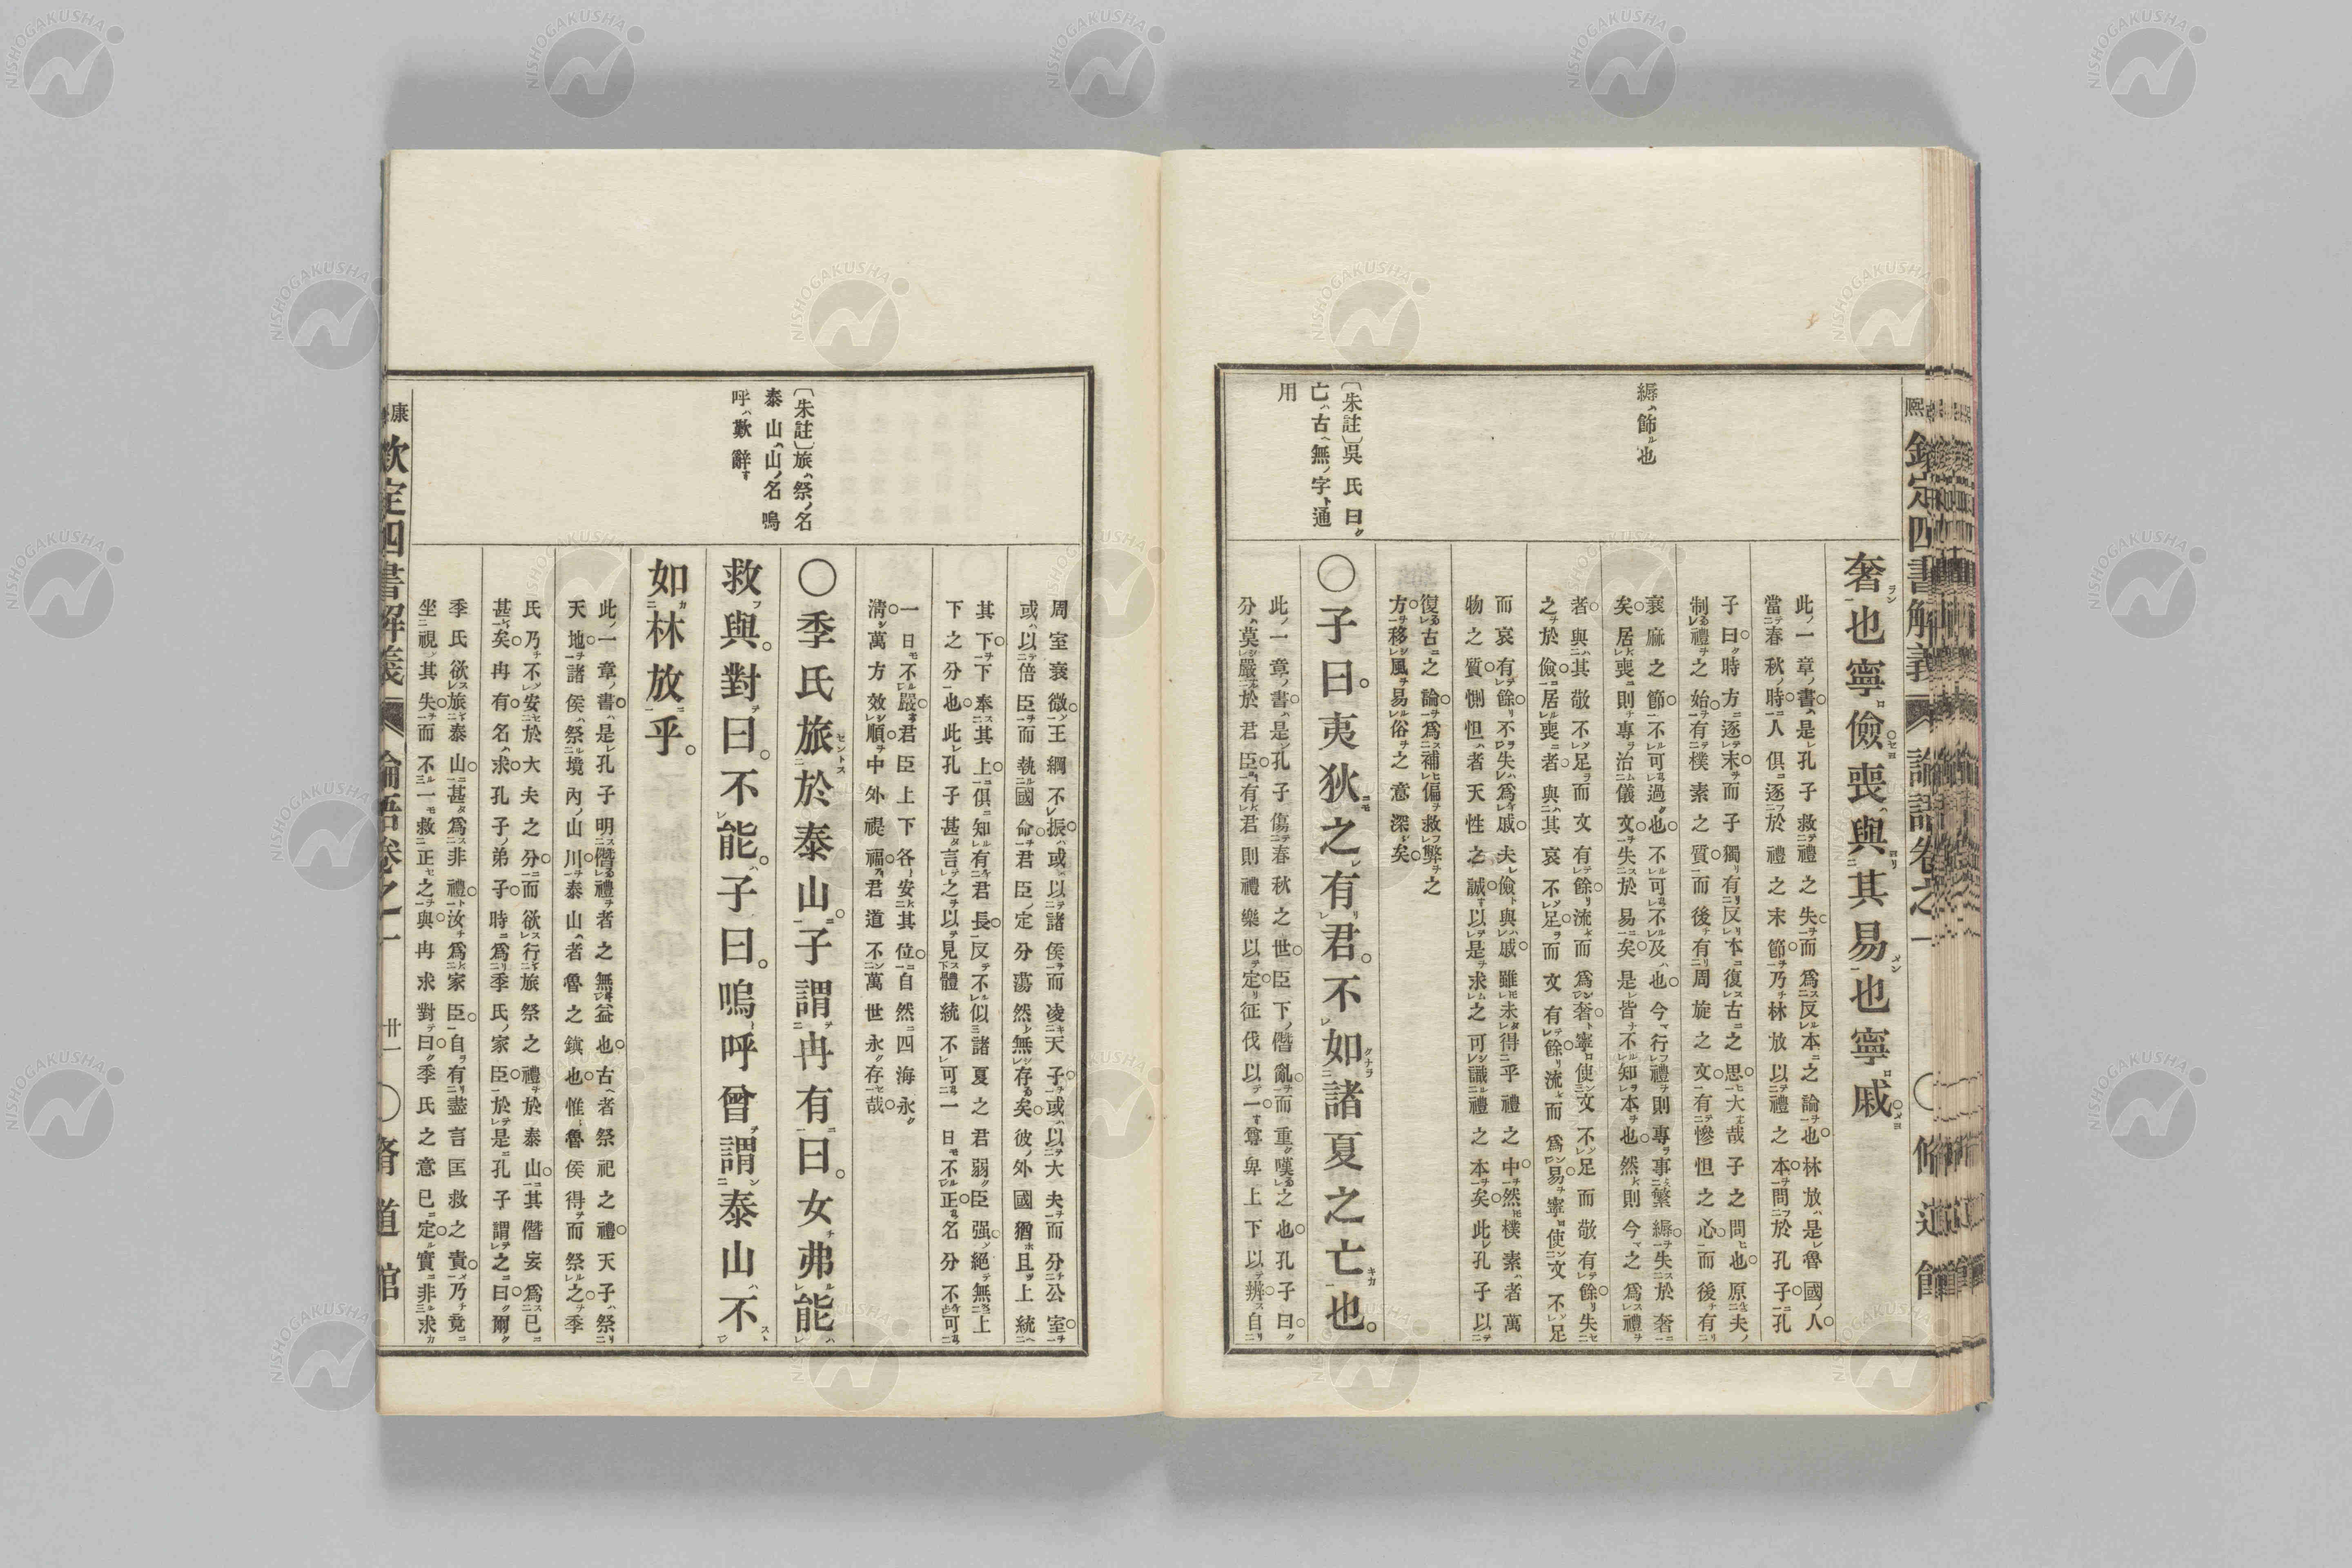 奢也寧儉喪與其易也寧戚
此一章書是孔子救禮之失而爲反本之論也林放是魯國人
當春秋時人俱逐於禮之末節乃林放以禮之本問於孔子孔
子曰時方逐末而子獨有反本復古之思大哉子之問也原夫
制禮之始有樸素之質而後有周旋之文有慘怛之心而後有
衰麻之節不可過也不可不及也今行禮則專事繁縟失於奢
矣居喪則專治儀文失於易矣是皆不知本也然則今之爲禮
者與其敬不足而文有餘流而爲奢寧使文不足而敬有餘失
之於儉居喪者與其哀不足而文有餘流而爲易寧使文不足
而哀有餘不失爲戚夫儉與戚雖未得乎禮之中然樸素者萬
物之質惻怛者天性之誠以是求之可識禮之本矣此孔子以
復古之論爲補偏救弊之
方移風易俗之意深矣
〇子曰夷狄之有君不如諸夏之亡也
此一章書是孔子傷春秋之世臣下僭亂而重嘆之也孔子曰
分莫嚴於君臣有君則禮樂以定征伐以一尊卑上下以辨自
縟ハ飾ル也
〔朱註〕吳氏曰ク
亡ハ古ヘ無ノ字ト通
用
熙
欽定四書解義 論語卷之一 〇脩道館
周室衰微王綱不振或以諸侯而凌天子或以大夫而分公室
或以倍臣而執國命君臣定分蕩然無存矣彼外國猶且上統
其下下奉其上俱知有君長反不似諸夏之君弱臣强絕無上
下之分也此孔子甚言之以見體統不可一日不正名分不可
一日不嚴君臣上下各安其位自然四海永
淸萬方效順中外禔福君道不萬世永存哉
〇季氏旅於泰山子謂冉有曰女弗能
救與對曰不能子曰嗚呼曾謂泰山不
如林放乎
此一章書是孔子明僭禮者之無益也古者祭祀之禮天子祭
天地諸侯祭境內山川泰山者魯之鎮也惟魯侯得而祭之季
氏乃不安於大夫之分而欲行旅祭之禮於泰山其僭妄爲已
甚矣冉有名求孔子弟子時爲季氏家臣於是孔子謂之曰爾
季氏欲旅泰山甚爲非禮汝爲家臣自有盡言匡救之責乃竟
坐視其失而不一救正之與冉求對曰季氏之意已定實非求
〔朱註〕旅ハ祭ノ名
泰山ハ山ノ名嗚
呼ハ歎辭
康
欽定四書解義 論語卷之一 卄一 〇脩道館